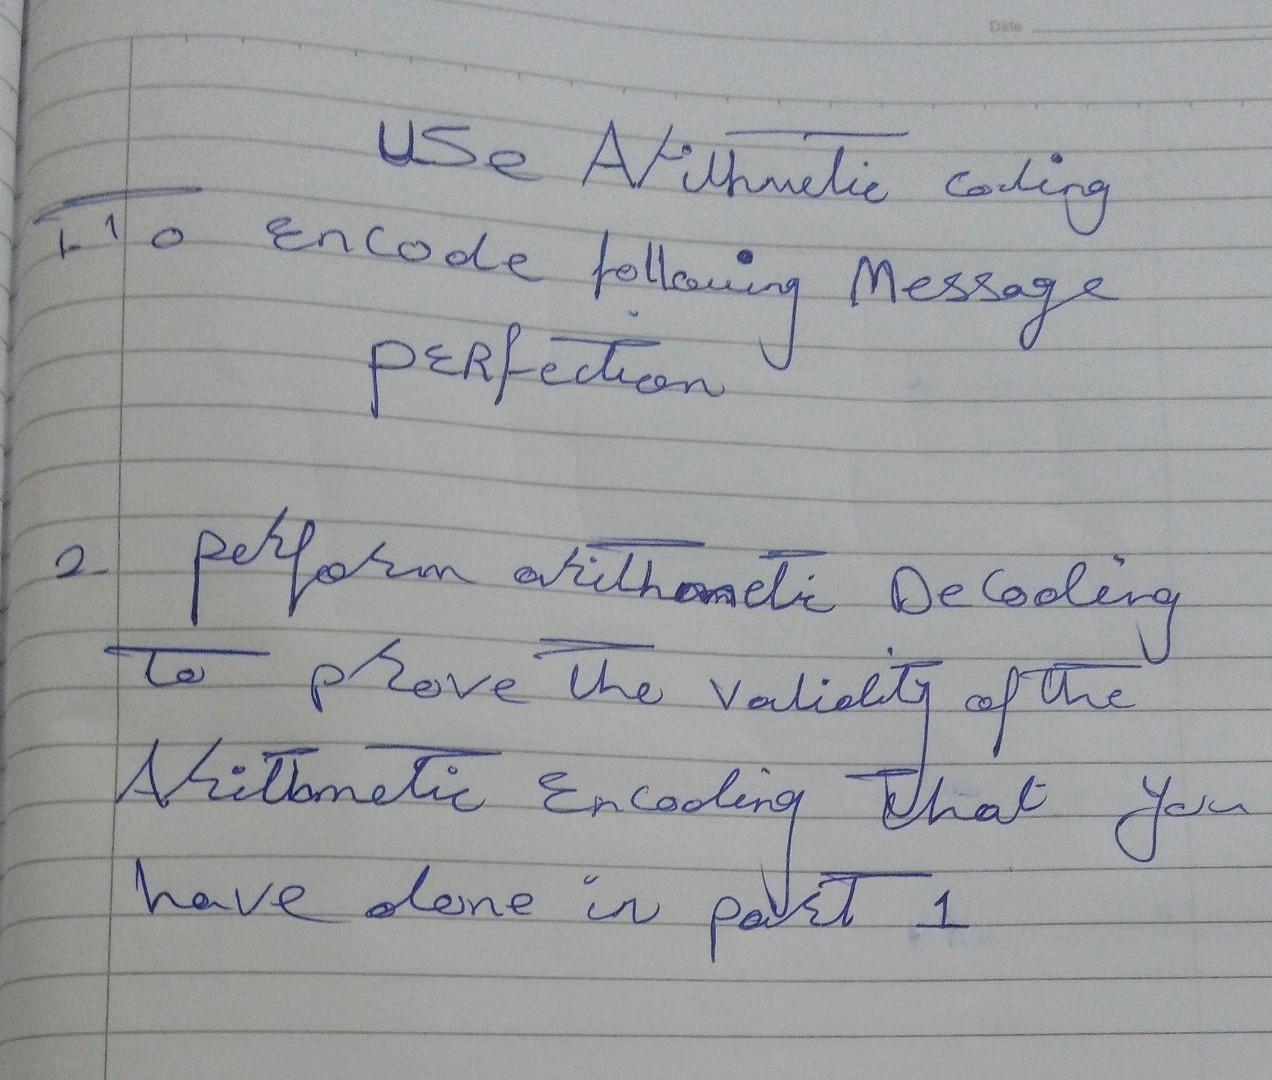 Date
Use Arithmetic coding
1- To encode following Message
PERfection
2- Perform arithmetic Decoding
to prove the validity of the
Arithmetic Encoding that you
have done in part 1